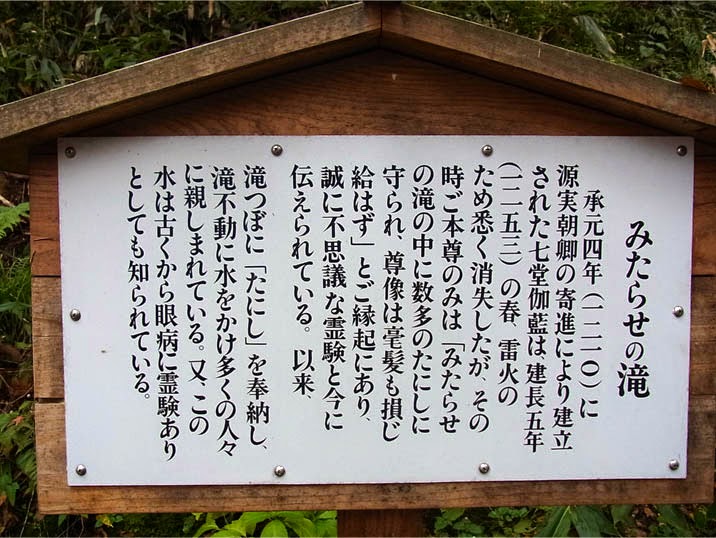 みたらせの滝
承元四年(一二一〇)に
源実朝卿の寄進により建立
された七堂伽藍は、建長五年
(一二五三)の春、雷火の
ため悉く消失したが、その
時ご本尊のみは「みたらせ
の滝の中に数多のたにしに
守られ、尊像は毫髪も損じ
給はず」とご縁起にあり、
誠に不思議な霊験と今に
伝えられている。以来、
滝つぼに「たにし」を奉納し、
滝不動に水をかけ多くの人々
に親しまれている。又、この
水は古くから眼病に霊験あり
としても知られている。